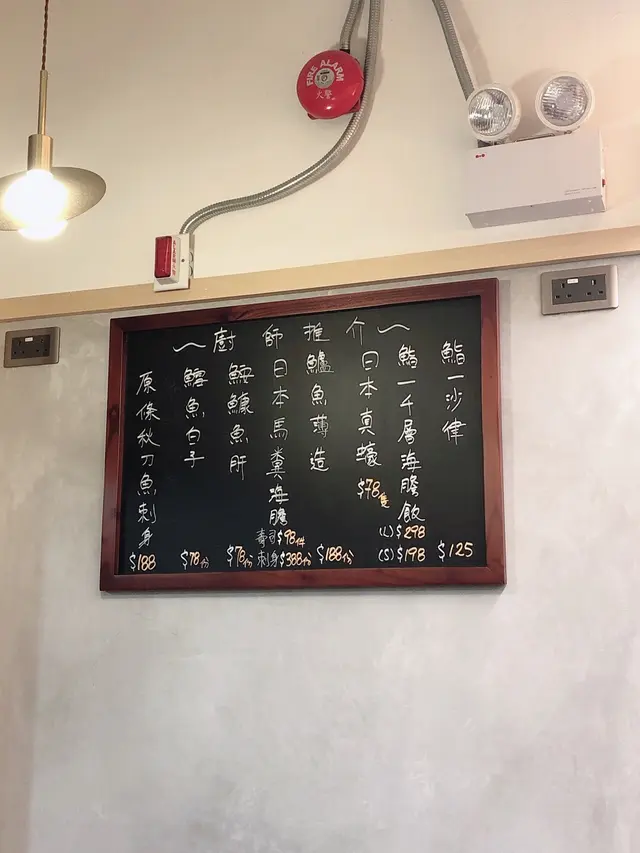 FIRE ALARM
火警
～廚師推介～
鮨一沙律
$125
鮨一千層海膽飯
(L) $298
(S) $198
日本真蠔
$78隻
鱸魚薄造
$188份
日本馬糞海膽
壽司$98件
刺身$388份
鮟鱇魚肝
$78份
鱈魚白子
$78份
原條秋刀魚刺身
$188